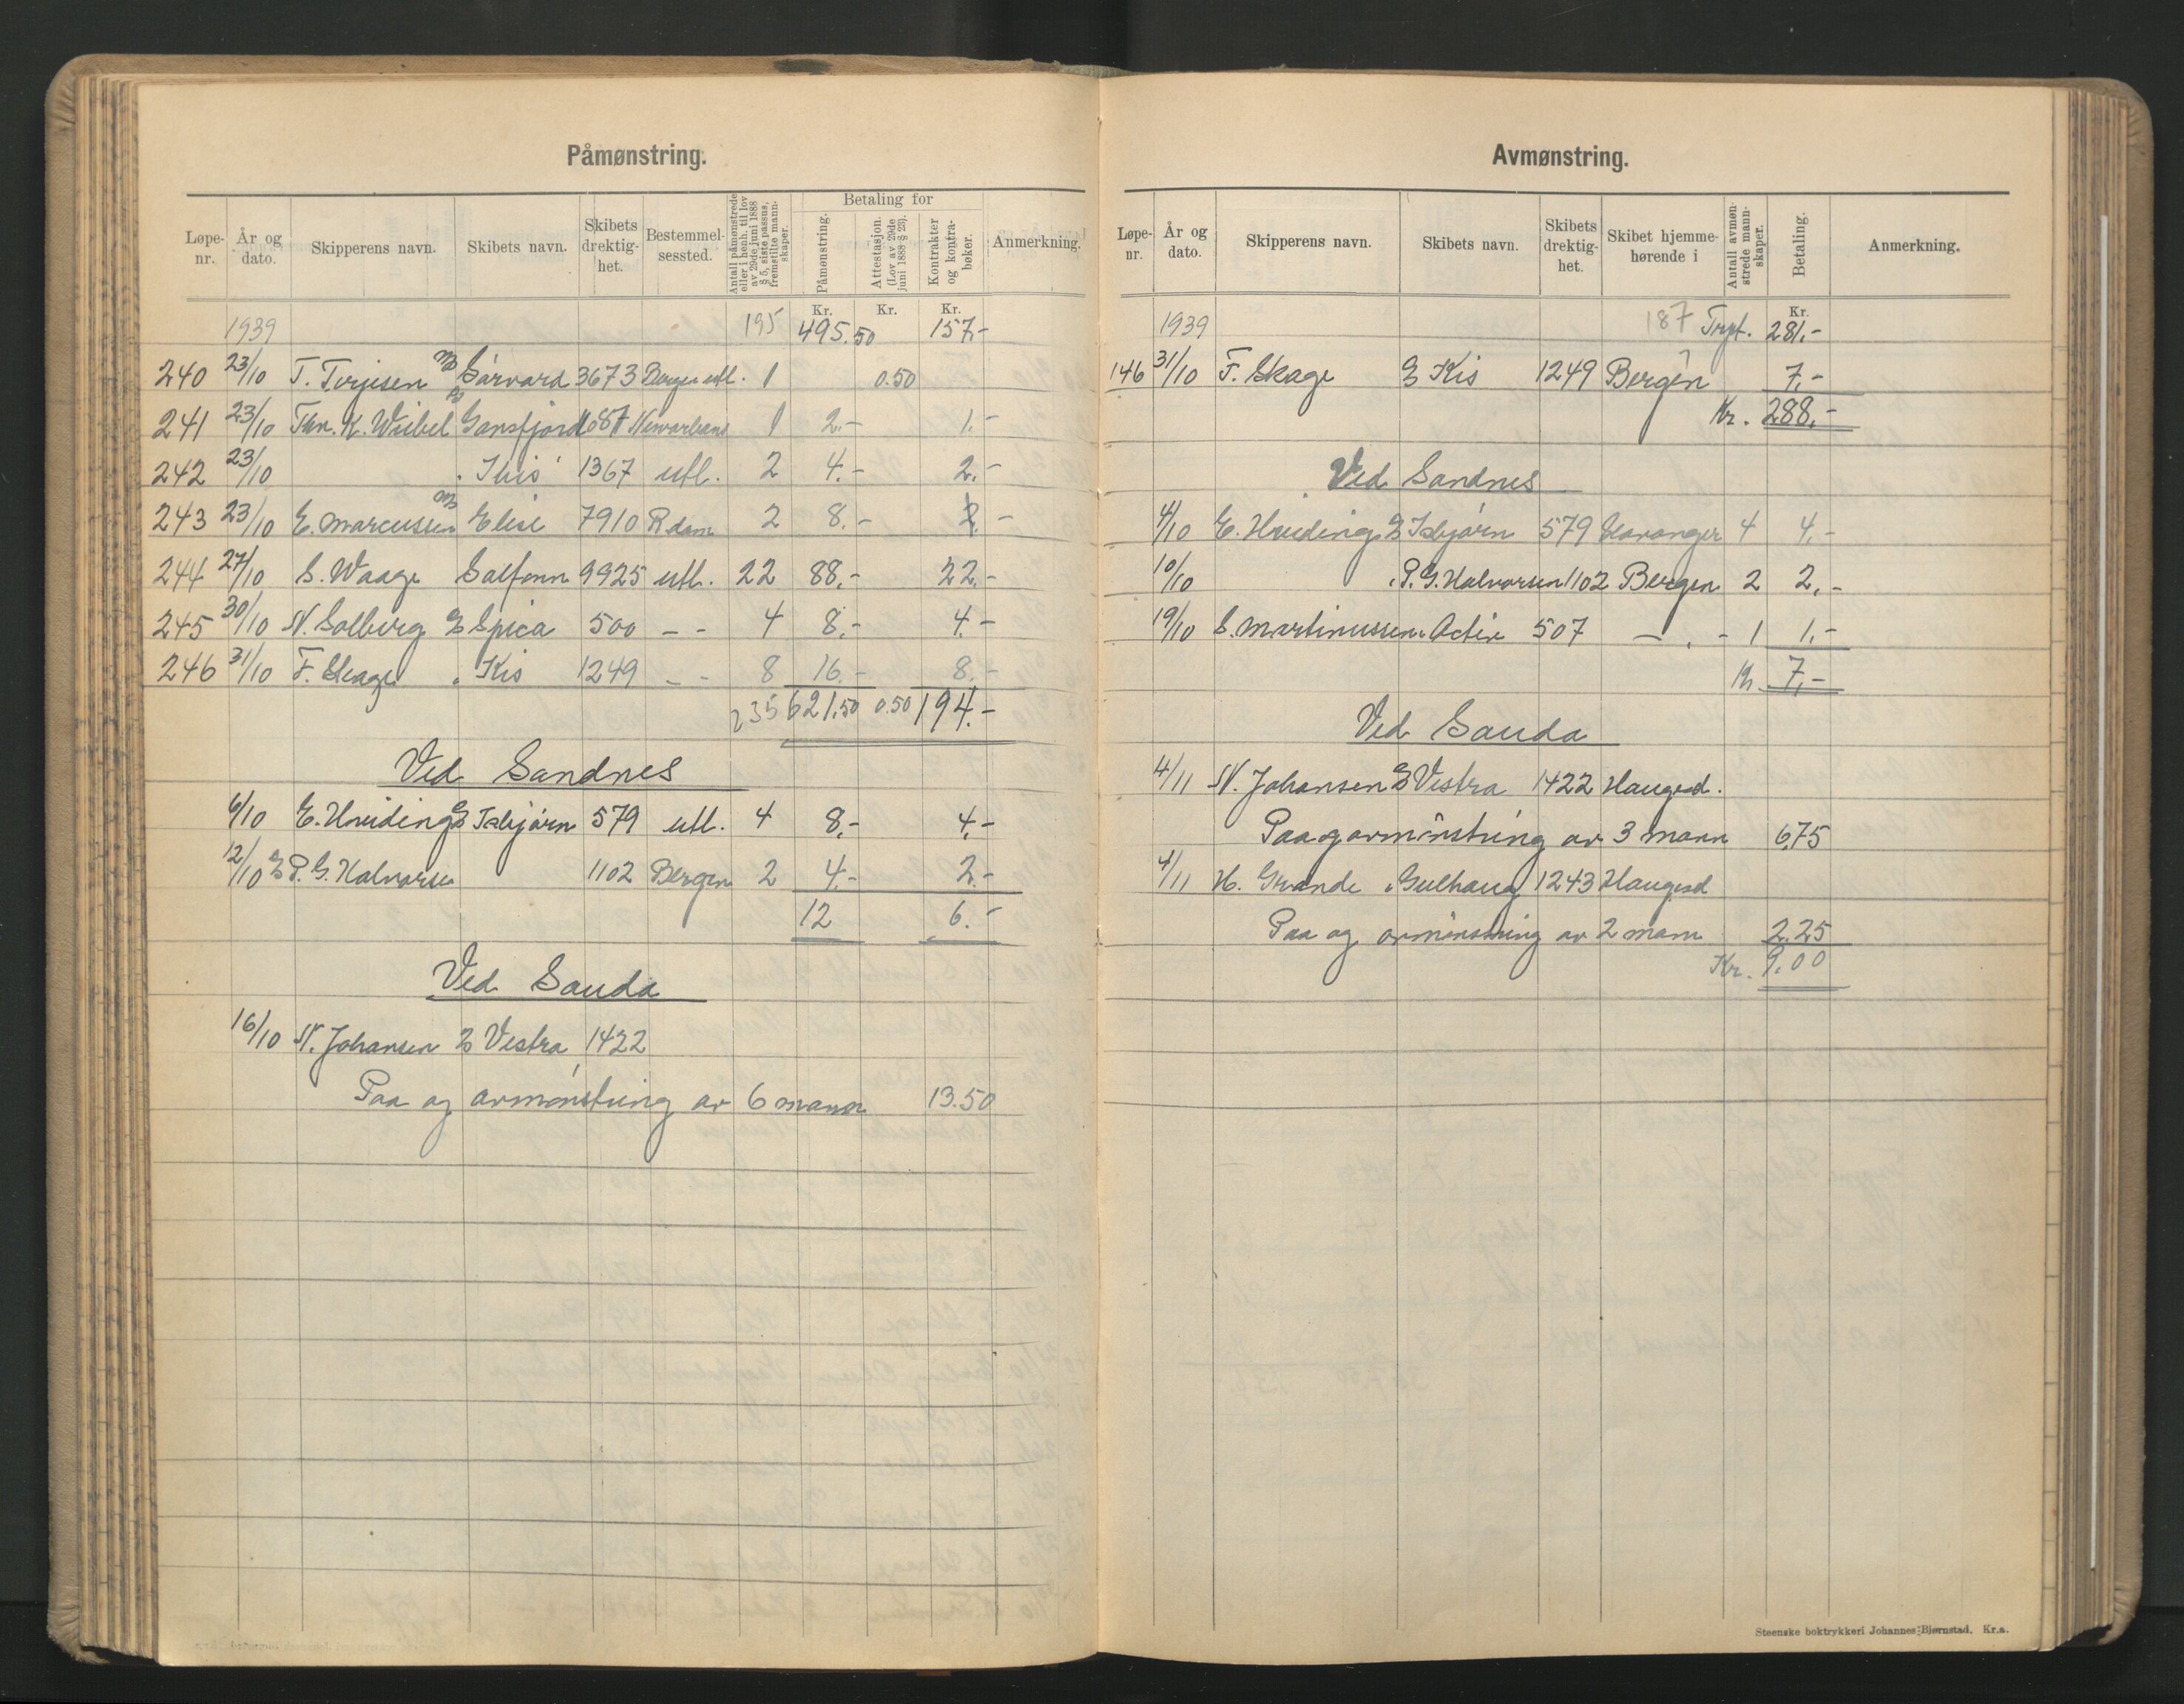 Påmønstring.
Løpe-nr. År og dato. Skipperens navn. Skibets navn. Skibets drektig-het. Bestemmel-sessted. Antall påmønstrede eller i henh. til lov av 29de juni 1888 § 5, siste passus, fremstilte mann-skaper. Betaling for Påmønstring. Attestasjon. (Lov av 29de juni 1888 § 23). Kontrakter og kontra-bøker. Anmerkning.
Kr. Kr. Kr.
1939 195 495.50 157,-
240 23/10 T. Terjesen Sørvard 3673 Bergen utl. 1 0.50
241 23/10 Thv. K. Wiebel Gansfjord 1087 Neworleans 1 2.- 1.-
242 23/10 " Ibis 1367 utl. 2 4.- 2.-
243 23/10 E. Marcussen Elise 7910 Rdam 2 8.- 2.-
244 27/10 S. Waage Solfonn 9925 utl. 22 88,- 22.-
245 30/10 N. Solberg Spica 500 - - 4 8,- 4.-
246 31/10 F. Skage " Kis 1249 - - 8 16.- 8.-
235 621,50 0.50 194.-
Ved Sandnes
6/10 E. Hveding Isbjørn 579 utl. 4 8,- 4,-
12/10 P. G. Halvorsen 1102 Bergen 2 4,- 2.-
12 6.-
Ved Sauda
16/10 N. Johansen Vestra 1422
Paa og avmønstring av 6 mann 13.50
Avmønstring.
Løpe-nr. År og dato. Skipperens navn. Skibets navn. Skibets drektig-het. Skibet hjemme-hørende i Antall avmøn-strede mann-skaper. Betaling. Anmerkning.
Kr.
1939 187 Trpt. 281,-
146 31/10 F. Skage Kis 1249 Bergen 7,-
Kr. 288,-
Ved Sandnes
4/10 E. Hveding Isbjørn 579 Stavanger 4 4,-
10/10 " P. G. Halvorsen 1102 Bergen 2 2,-
19/10 S. Martinussen " Activ 507 - " - 1 1.-
Kr. 7,-
Ved Sauda
4/11 N. Johansen Vestra 1422 Haugesd.
Paa og avmønstring av 3 mann 6,75
4/11 H. Grande " Gulhaug 1243 Haugesd
Paa og avmønstring av 2 mann 2,25
Kr. 9.00
Steenske boktrykkeri Johannes Bjørnstad. Kr.a.